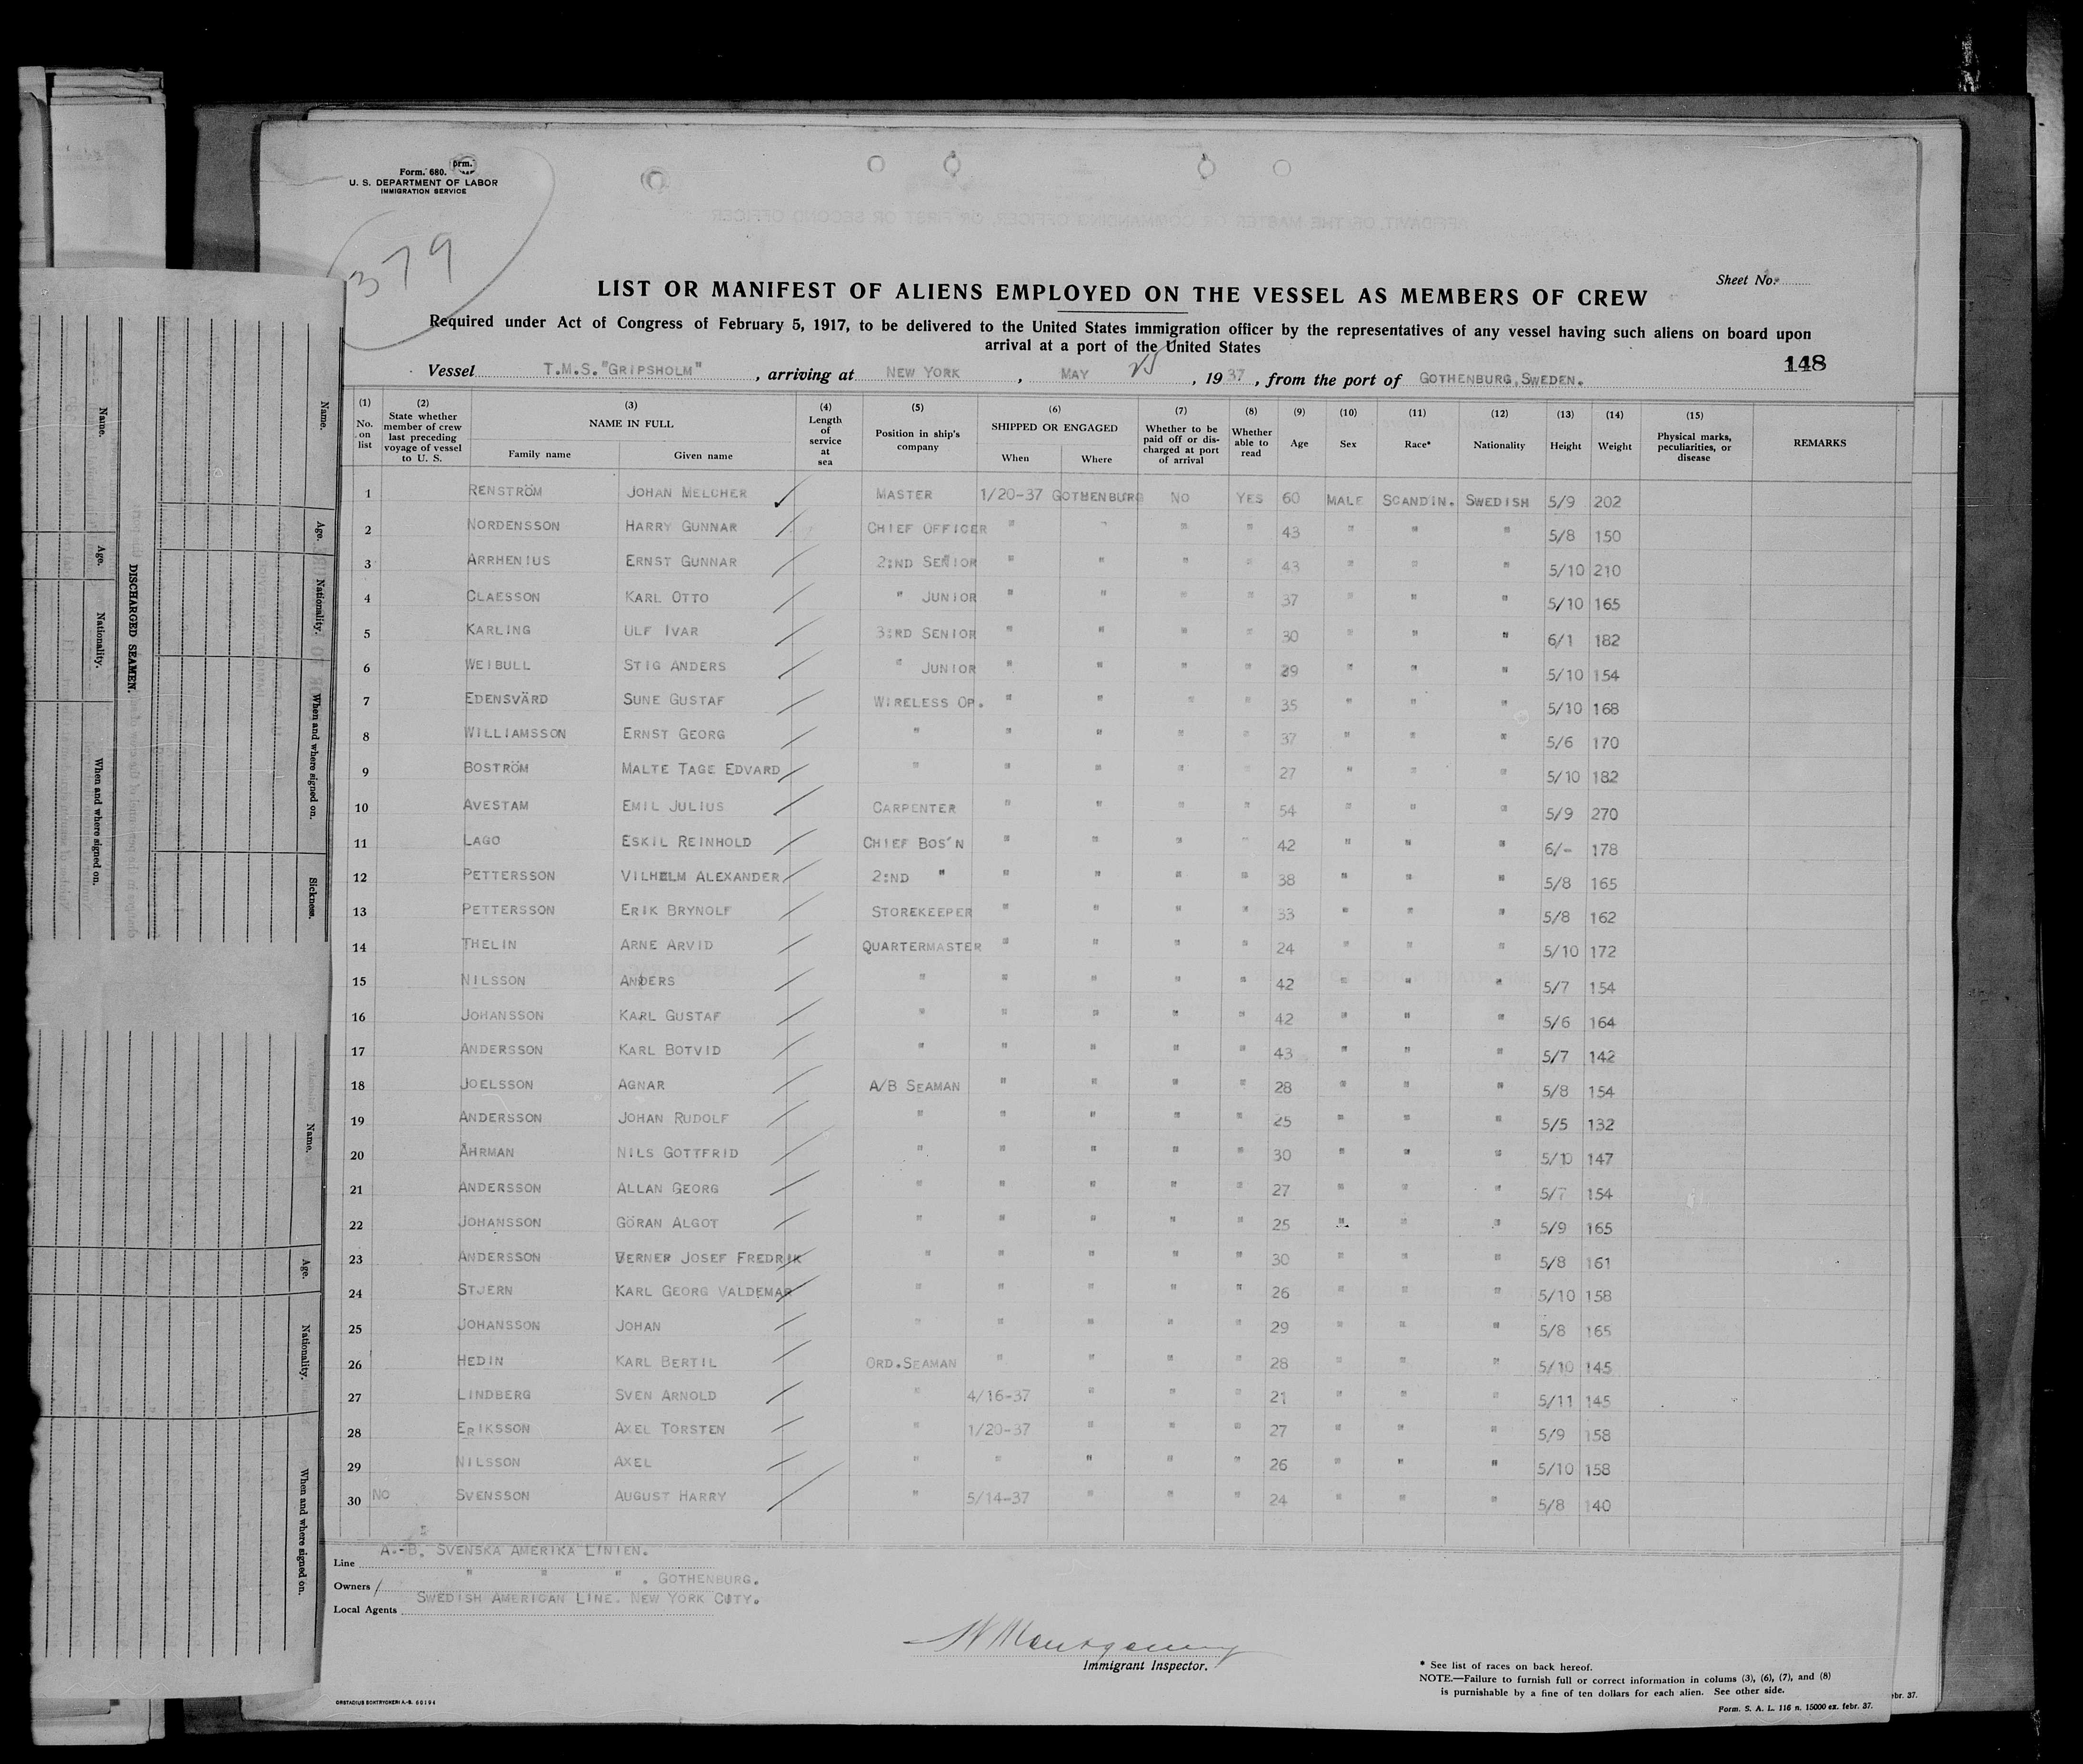 Form. 680.
U. S. DEPARTMENT OF LABOR
IMMIGRATION SERVICE
379
Sheet No.
LIST OR MANIFEST OF ALIENS EMPLOYED ON THE VESSEL AS MEMBERS OF CREW
Required under Act of Congress of February 5, 1917, to be delivered to the United States immigration officer by the representatives of any vessel having such aliens on board upon
arrival at a port of the United States
148
Vessel T.M.S."GRIPSHOLM", arriving at NEW YORK, MAY 25, 1937, from the port of GOTHENBURG, SWEDEN.
(1) No. on list (2) State whether member of crew last preceding voyage of vessel to U. S. (3) NAME IN FULL Family name Given name (4) Length of service at sea (5) Position in ship's company (6) SHIPPED OR ENGAGED When Where (7) Whether to be paid off or discharged at port of arrival (8) Whether able to read (9) Age (10) Sex (11) Race* (12) Nationality (13) Height (14) Weight (15) Physical marks, peculiarities, or disease REMARKS
1 RENSTRÖM JOHAN MELCHER MASTER 1/20-37 GOTHENBURG NO YES 60 MALE SCANDIN. SWEDISH 5/9 202
2 NORDENSSON HARRY GUNNAR CHIEF OFFICER " " " " 43 " " " 5/8 150
3 ARRHENIUS ERNST GUNNAR 2:ND SENIOR " " " " 43 " " " 5/10 210
4 CLAESSON KARL OTTO " JUNIOR " " " " 37 " " " 5/10 165
5 KARLING ULF IVAR 3:RD SENIOR " " " " 30 " " " 6/1 182
6 WEIBULL STIG ANDERS " JUNIOR " " " " 29 " " " 5/10 154
7 EDENSVÄRD SUNE GUSTAF WIRELESS OP. " " " " 35 " " " 5/10 168
8 WILLIAMSSON ERNST GEORG " " " " " 37 " " " 5/6 170
9 BOSTRÖM MALTE TAGE EDVARD " " " " " 27 " " " 5/10 182
10 AVESTAM EMIL JULIUS CARPENTER " " " " 54 " " " 5/9 270
11 LAGO ESKIL REINHOLD CHIEF BOS'N " " " " 42 " " " 6/- 178
12 PETTERSSON VILHELM ALEXANDER 2:ND " " " " " 38 " " " 5/8 165
13 PETTERSSON ERIK BRYNOLF STOREKEEPER " " " " 33 " " " 5/8 162
14 THELIN ARNE ARVID QUARTERMASTER " " " " 24 " " " 5/10 172
15 NILSSON ANDERS " " " " " 42 " " " 5/7 154
16 JOHANSSON KARL GUSTAF " " " " " 42 " " " 5/6 164
17 ANDERSSON KARL BOTVID " " " " " 43 " " " 5/7 142
18 JOELSSON AGNAR A/B SEAMAN " " " " 28 " " " 5/8 154
19 ANDERSSON JOHAN RUDOLF " " " " " 25 " " " 5/5 132
20 ÅHRMAN NILS GOTTFRID " " " " " 30 " " " 5/10 147
21 ANDERSSON ALLAN GEORG " " " " " 27 " " " 5/7 154
22 JOHANSSON GÖRAN ALGOT " " " " " 25 " " " 5/9 165
23 ANDERSSON VERNER JOSEF FREDRIK " " " " " 30 " " " 5/8 161
24 STJERN KARL GEORG VALDEMAR " " " " " 26 " " " 5/10 158
25 JOHANSSON JOHAN " " " " " 29 " " " 5/8 165
26 HEDIN KARL BERTIL ORD.SEAMAN " " " " 28 " " " 5/10 145
27 LINDBERG SVEN ARNOLD " 4/16-37 " " " 21 " " " 5/11 145
28 ERIKSSON AXEL TORSTEN " 1/20-37 " " " 27 " " " 5/9 158
29 NILSSON AXEL " " " " " 26 " " " 5/10 158
30 NO SVENSSON AUGUST HARRY " 5/14-37 " " " 24 " " " 5/8 140
Line A.-B. SVENSKA AMERIKA LINIEN.
Owners " " " . GOTHENBURG.
Local Agents SWEDISH AMERICAN LINE. NEW YORK CITY.
Montgomery
Immigrant Inspector.
* See list of races on back hereof.
NOTE.—Failure to furnish full or correct information in colums (3), (6), (7), and (8)
is punishable by a fine of ten dollars for each alien. See other side.
Form. S. A. L. 116 n. 15000 ex. febr. 37.
ebr. 37.
Name. Age. Nationality. When and where signed on. Sickness.
Name. Age. Nationality. When and where signed on.
DISCHARGED SEAMEN.
Name. Age. Nationality. When and where signed on.